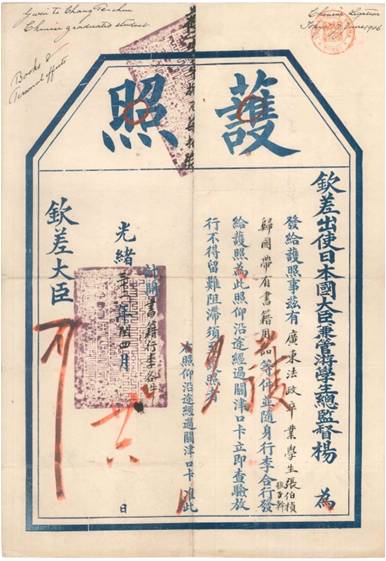 Chinese graduate student
Books &
Personal effects
Chinese Legation
護照
欽差出使日本國大臣兼管游學生總監督楊 為
發給護照事茲有廣東法政畢業學生張伯楨
歸國帶有書籍用品等件並隨身行李合行發
給護照為此照仰沿途經過關津口卡立即查驗放
行不得留難阻滯須至護照者
右照仰沿途經過關津口卡准此
書籍行李各件
光緒三十二年閏四月 日
欽差大臣
行